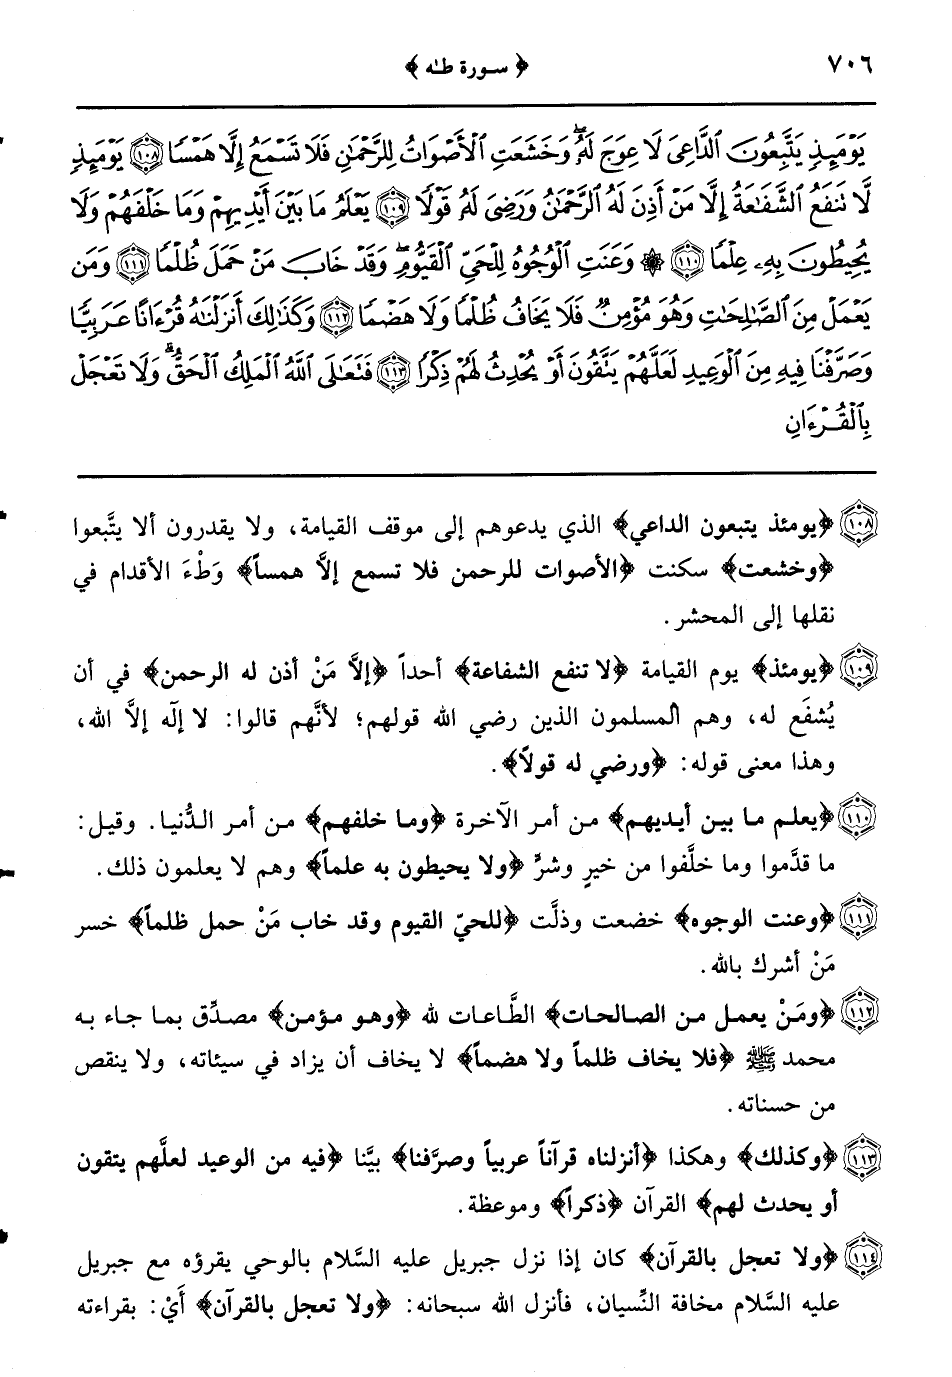 ٧٠٦
﴿ سورة طـٰه ﴾
يَوْمَئِذٍ يَتَّبِعُونَ ٱلدَّاعِىَ لَا عِوَجَ لَهُۥ ۖ وَخَشَعَتِ ٱلْأَصْوَاتُ لِلرَّحْمَٰنِ فَلَا تَسْمَعُ إِلَّا هَمْسًا ١٠٨ يَوْمَئِذٍ
لَّا تَنفَعُ ٱلشَّفَٰعَةُ إِلَّا مَنْ أَذِنَ لَهُ ٱلرَّحْمَٰنُ وَرَضِىَ لَهُۥ قَوْلًا ١٠٩ يَعْلَمُ مَا بَيْنَ أَيْدِيهِمْ وَمَا خَلْفَهُمْ وَلَا
يُحِيطُونَ بِهِۦ عِلْمًا ١١٠ ۞ وَعَنَتِ ٱلْوُجُوهُ لِلْحَىِّ ٱلْقَيُّومِ ۖ وَقَدْ خَابَ مَنْ حَمَلَ ظُلْمًا ١١١ وَمَن
يَعْمَلْ مِنَ ٱلصَّٰلِحَٰتِ وَهُوَ مُؤْمِنٌ فَلَا يَخَافُ ظُلْمًا وَلَا هَضْمًا ١١٢ وَكَذَٰلِكَ أَنزَلْنَٰهُ قُرْءَانًا عَرَبِيًّا
وَصَرَّفْنَا فِيهِ مِنَ ٱلْوَعِيدِ لَعَلَّهُمْ يَتَّقُونَ أَوْ يُحْدِثُ لَهُمْ ذِكْرًا ١١٣ فَتَعَٰلَى ٱللَّهُ ٱلْمَلِكُ ٱلْحَقُّ ۗ وَلَا تَعْجَلْ
بِٱلْقُرْءَانِ
١٠٨ ﴿يومئذ يتبعون الداعي﴾ الذي يدعوهم إلى موقف القيامة، ولا يقدرون ألا يتَّبعوا
﴿وخشعت﴾ سكنت ﴿الأصوات للرحمن فلا تسمع إلاَّ همساً﴾ وَطْءَ الأقدام في
نقلها إلى المحشر.
١٠٩ ﴿يومئذ﴾ يوم القيامة ﴿لا تنفع الشفاعة﴾ أحداً ﴿إلاَّ مَنْ أذن له الرحمن﴾ في أن
يُشفَع له، وهم المسلمون الذين رضي الله قولهم؛ لأنَّهم قالوا: لا إلٰه إلاَّ الله،
وهذا معنى قوله: ﴿ورضي له قولاً﴾.
١١٠ ﴿يعلم ما بين أيديهم﴾ من أمر الآخرة ﴿وما خلفهم﴾ من أمر الدُّنيا. وقيل:
ما قدَّموا وما خلَّفوا من خيرٍ وشرٍّ ﴿ولا يحيطون به علماً﴾ وهم لا يعلمون ذلك.
١١١ ﴿وعنت الوجوه﴾ خضعت وذلَّت ﴿للحيّ القيوم وقد خاب مَنْ حمل ظلماً﴾ خسر
مَنْ أشرك بالله.
١١٢ ﴿ومَنْ يعمل من الصالحات﴾ الطَّاعات لله ﴿وهو مؤمن﴾ مصدِّق بما جاء به
محمد ﷺ ﴿فلا يخاف ظلماً ولا هضماً﴾ لا يخاف أن يزاد في سيئاته، ولا ينقص
من حسناته.
١١٣ ﴿وكذلك﴾ وهكذا ﴿أنزلناه قرآناً عربياً وصرَّفنا﴾ بيَّنا ﴿فيه من الوعيد لعلَّهم يتقون
أو يحدث لهم﴾ القرآن ﴿ذكراً﴾ وموعظة.
١١٤ ﴿ولا تعجل بالقرآن﴾ كان إذا نزل جبريل عليه السَّلام بالوحي يقرؤه مع جبريل
عليه السَّلام مخافة النِّسيان، فأنزل الله سبحانه: ﴿ولا تعجل بالقرآن﴾ أَيْ: بقراءته